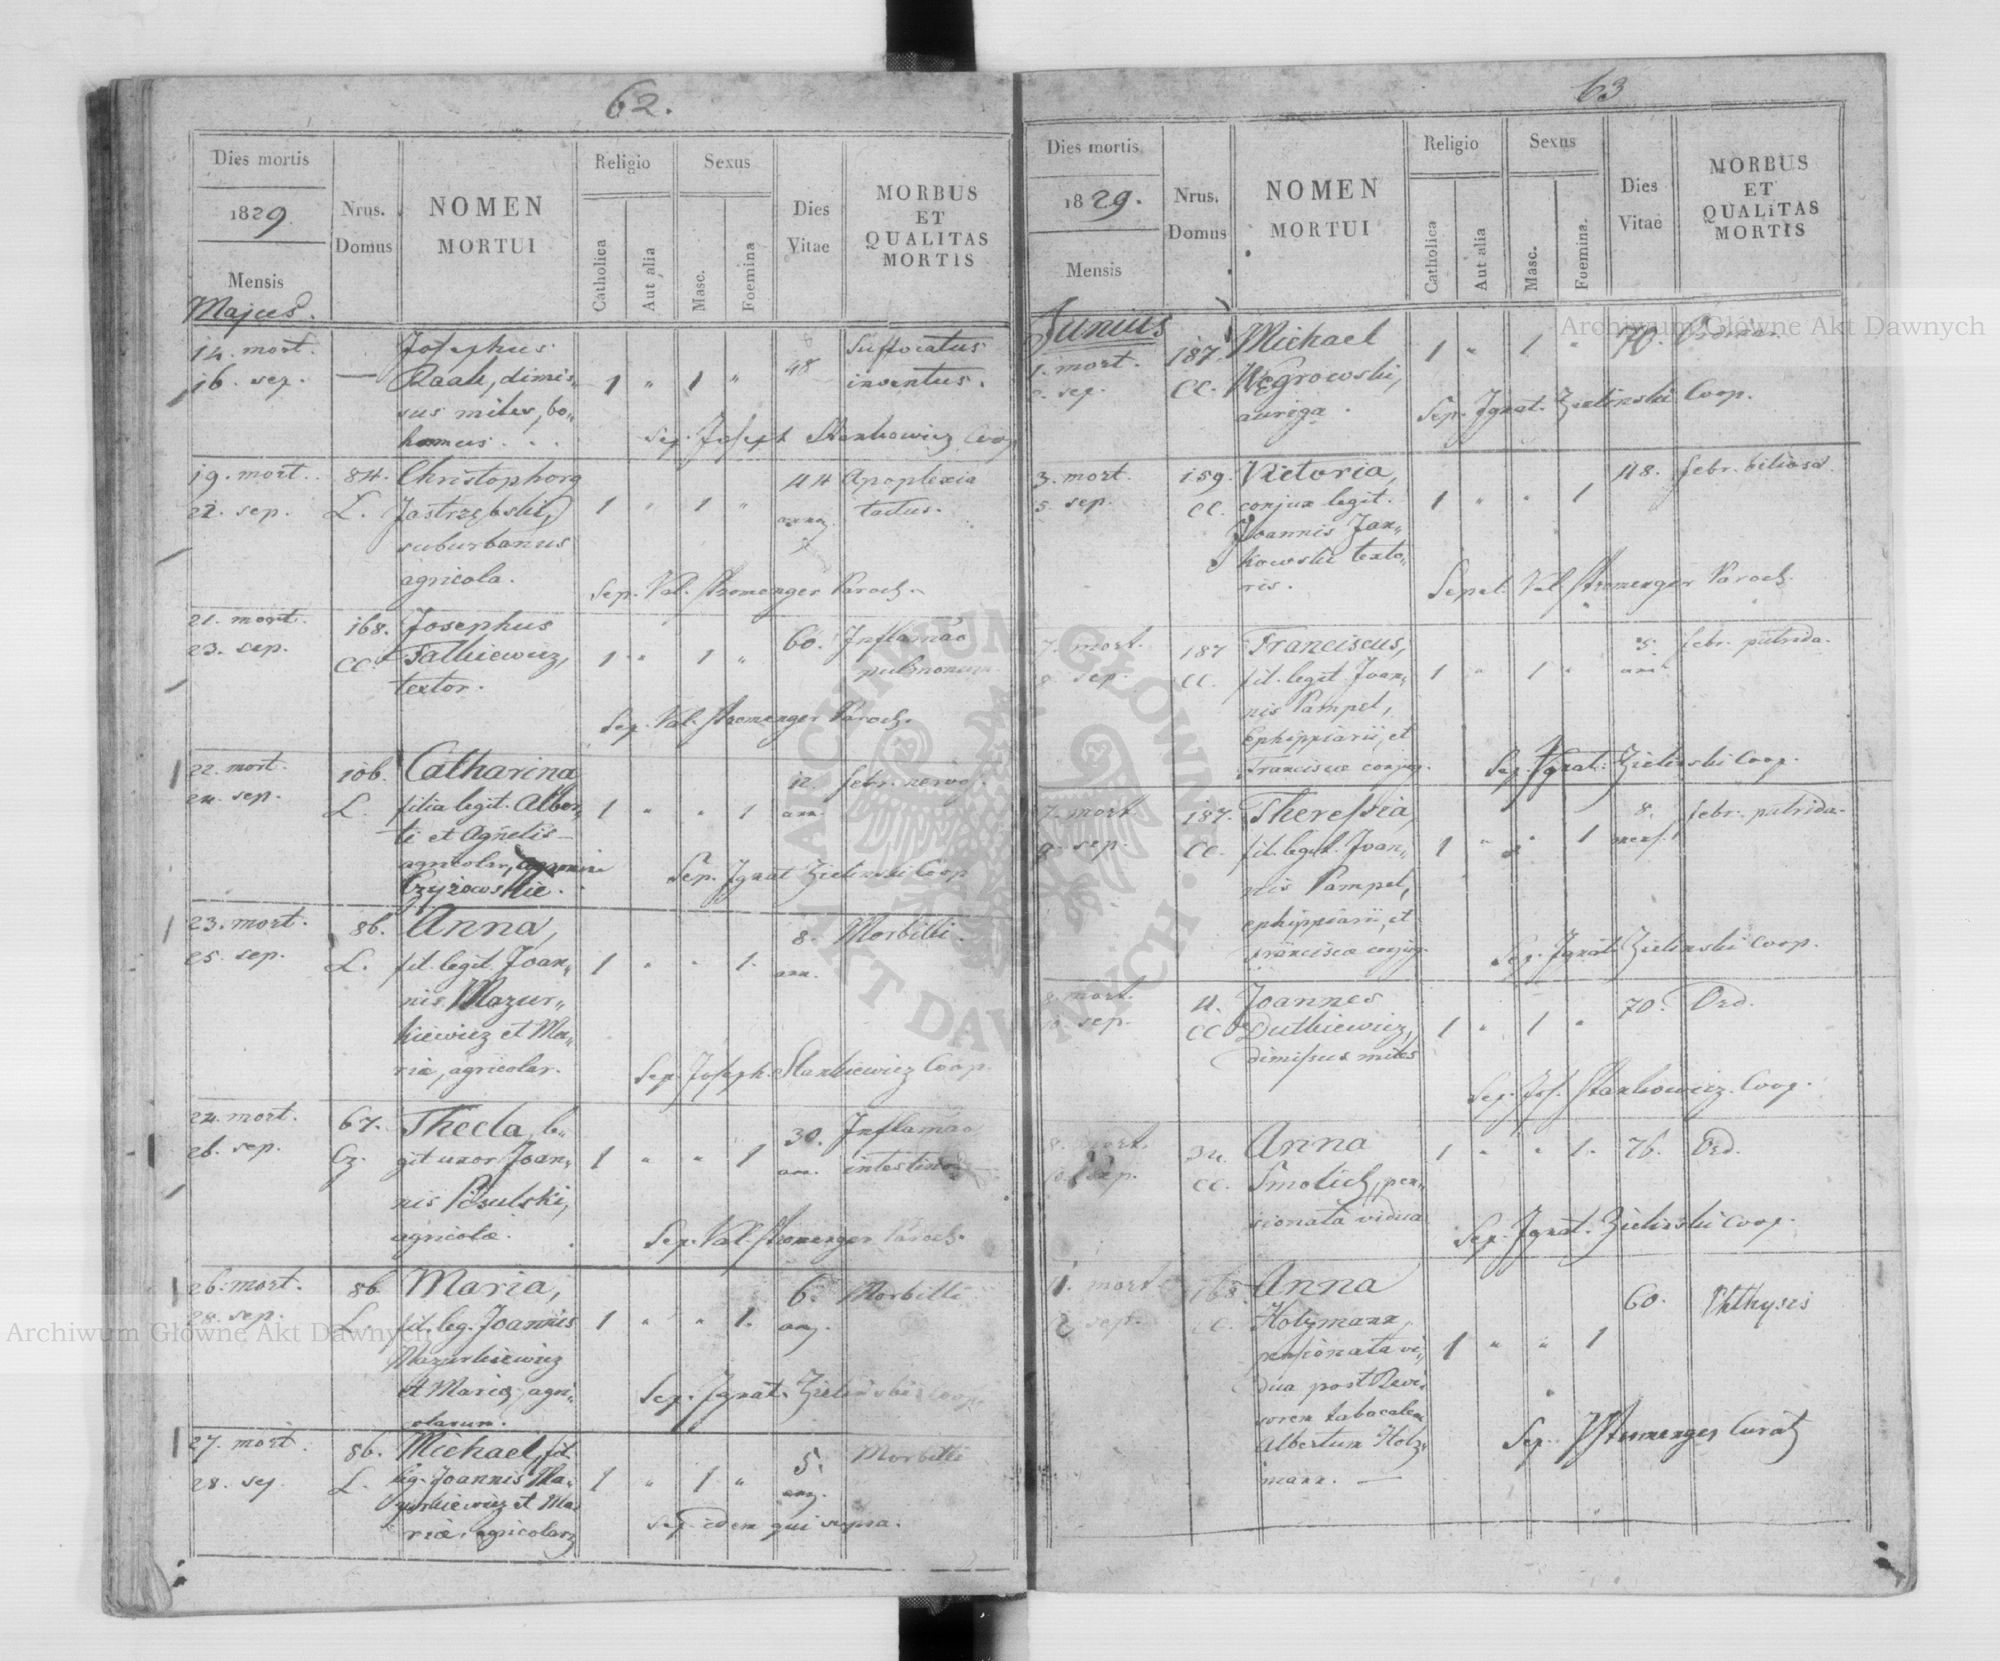 62.
Dies mortis
1829.
Mensis
Majus.
Nrus.
Domus
NOMEN
MORTUI
Religio
Catholica
Aut alia
Sexus
Masc.
Foemina
Dies
Vitae
MORBUS
ET
QUALITAS
MORTIS
14. mort.
16. sep.
—
Josephus
Raak, dimis„
sus miles, bo„
hemus.
1 „ 1 „
48
Suffocatus
inventus.
Sep. Joseph Stankowicz Coop
19. mort.
22. sep.
84.
L.
Christophorg
Jastrzębski,
suburbanus
agricola.
1 „ 1 „
44
Apoplexia
tactus.
Sep. Val. Stromenger Paroch.
21. mort.
23. sep.
168.
CC.
Josephus
Falkiewicz,
textor.
1 „ 1 „
60.
Inflamāo
pulmonum.
Sep. Val. Stromenger Paroch.
22. mort.
24. sep.
106.
L.
Catharina,
filia legit. Alber„
ti et Agnetis
agricolar,
Czyżowskie.
1 „ „ 1
12.
ann.
febr. nervo.
Sep. Ignat Zielinski Coop
23. mort.
25. sep.
86.
L.
Anna,
fil. legit. Joan„
nis Mazur„
kiewicz et Ma„
riæ, agricolar.
1 „ „ 1.
8.
ann.
Morbilli.
Sep. Joseph Stankiewicz Coop.
24. mort.
26. sep.
67.
Cz.
Thecla, le„
git uxor Joan„
nis
agricolæ.
1 „ „ 1
30.
ann.
Inflamāo
intestino
Sep. Val. Stromenger Paroch.
26. mort.
28. sep.
86.
L.
Maria,
fil. leg. Joannis
Mazurkiewicz
et Mariæ, agri„
colarum.
1 „ „ 1.
6.
Morbilli
Sep. Ignat. Zielinski Coop.
27. mort.
28. sep
86.
L.
Michael, fil.
leg. Joannis Ma„
zurkiewicz et Ma
riæ, agricolarz
1 „ 1 „
5.
Morbilli
sep. idem qui supra.
63
Dies mortis
1829.
Mensis
Junius
Nrus.
Domus
NOMEN
MORTUI
Religio
Catholica
Aut alia
Sexus
Masc.
Foemina.
Dies
Vitae
MORBUS
ET
QUALITAS
MORTIS
1. mort.
2. sep.
187.
CC.
Michael
Węgrowski,
auriga.
1 „ 1 „
70.
Ordinar.
Sep. Ignat. Zielinski Coop.
3. mort.
5. sep.
159.
CC.
Victoria,
conjux legit.
Joannis Jan„
kowski texto„
ris.
1 „ „ 1
48.
febr. biliosa.
Sepel. Val Stromenger Paroch.
7. mort.
8. sep.
187
CC.
Franciscus,
fil. legit. Joan„
nis Pampel,
Ephippiarii, et
Franciscæ conjug.
1 „ 1 „
5.
ann.
febr. putrida.
Sep. Ignat. Zielinski Coop.
7. mort.
9. sep.
187.
CC.
Theressia,
fil. legit. Joan„
nis Pampel,
ephippiarii, et
Franciscæ conjug.
1 „ „ 1
8.
mens.
febr. putrida.
Sep. Ignat. Zielinski Coop.
8. mort.
10. sep.
4.
CC.
Joannes
Dutkiewicz,
dimissus miles
1 „ 1 „
70.
Ord.
Sep. Jos. Stankowicz. Coop.
8. mort.
10. sep.
34.
CC.
Anna
Smolich, pen„
sionata vidua
1 „ „ 1.
76.
Ord.
Sep. Ignat. Zielinski Coop.
1. mort
2 sep.
168.
CC.
Anna
Holzmann,
pensionata vi„
dua post Revi„
sorem tabacalem
Albertum Holz„
mann. —
1 „ „ 1
60.
Phthysis
Sep. Stromenger Curat
Archiwum Główne Akt Dawnych
Archiwum Główne Akt Dawnych
ARCHIWUM GŁÓWNE AKT DAWNYCH